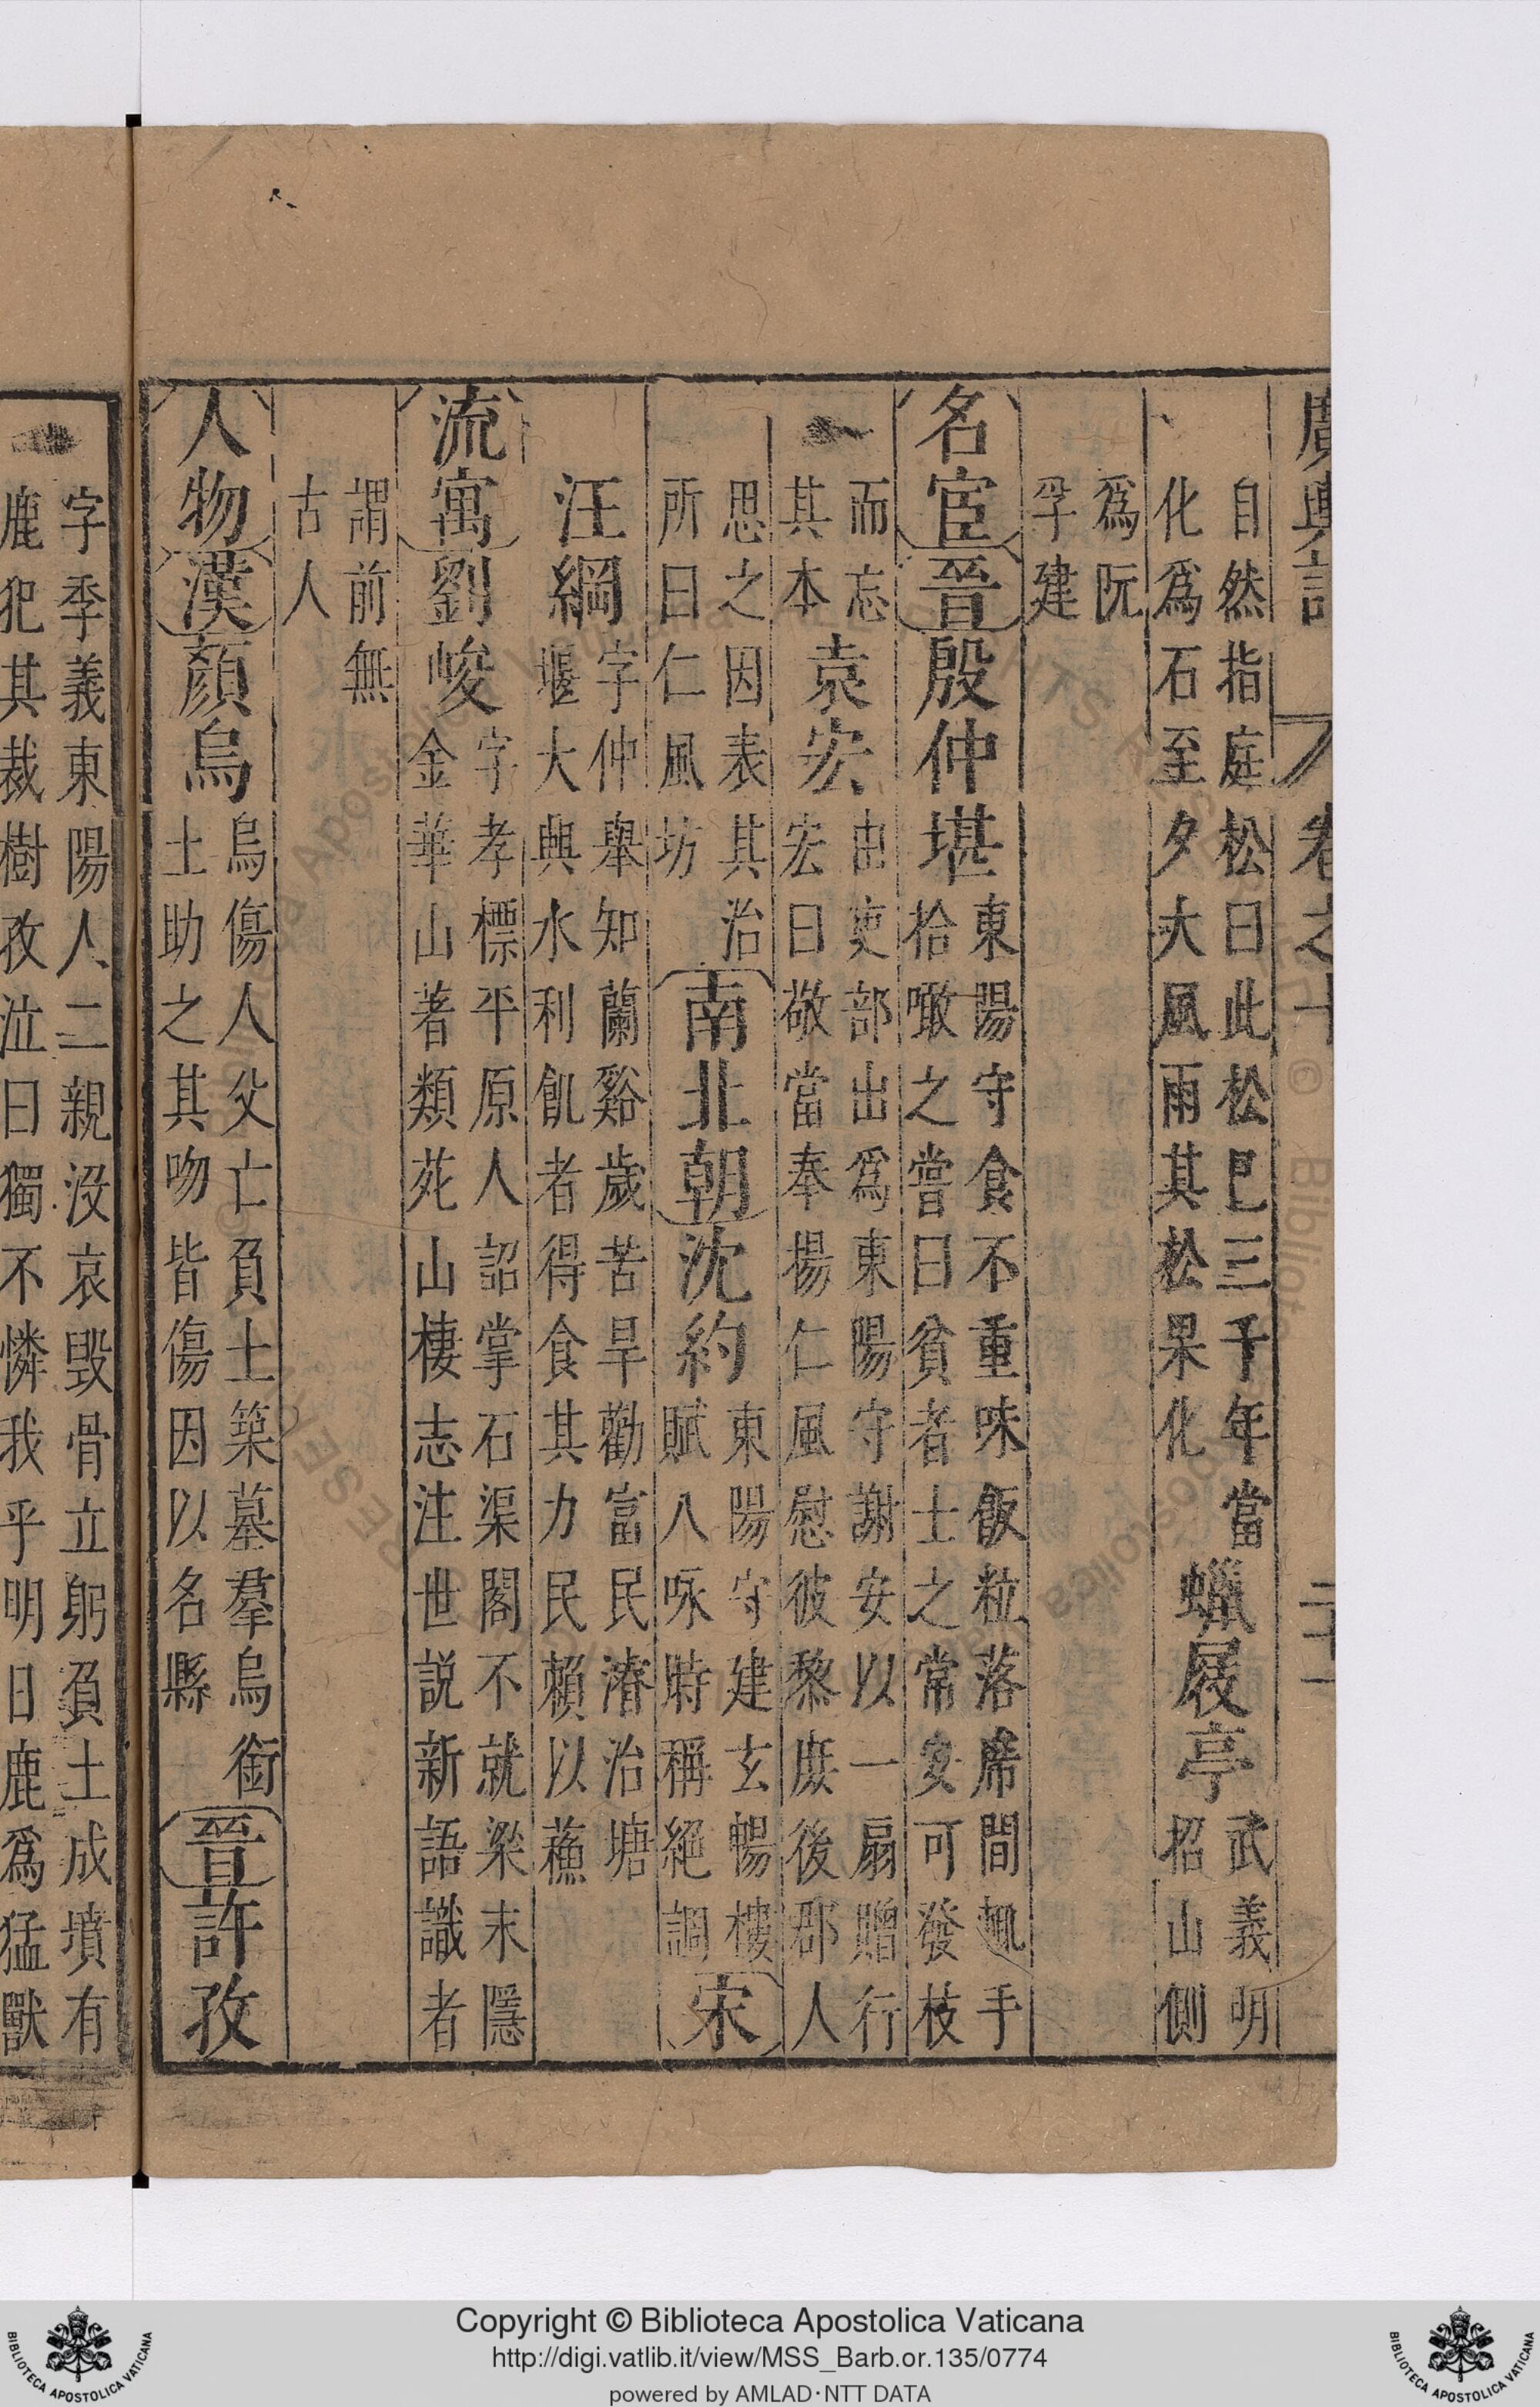 廣輿記 卷之十 二十一
自然指庭松曰此松已三千年當
化爲石至夕大風雨其松果化
蠟屐亭
武義明
招山側
爲阮
孚建
名宦 晉 殷仲堪
東陽守食不重味飯粒落席間輒手
拾噉之嘗曰貧者士之常安可發枝
而忘
其本
袁宏
由吏部出爲東陽守謝安以一扇贈行
宏曰敬當奉揚仁風慰彼黎庶後郡人
思之因表其治
所曰仁風坊
南北朝 沈約
東陽守建玄暢樓
賦八咏時稱絕調
宋
汪綱
字仲舉知蘭谿歲苦旱勸富民濬治塘
堰大興水利飢者得食其力民賴以蘓
流寓 劉峻
字孝標平原人詔掌石渠閣不就梁末隱
金華山著類苑山棲志注世説新語識者
謂前無
古人
人物 漢 顏烏
烏傷人父亡負土築墓羣烏銜
土助之其吻皆傷因以名縣
晉 許孜
字季義東陽人二親沒哀毀骨立躬負土成墳有
鹿犯其栽樹孜泣曰獨不憐我乎明日鹿爲猛獸
Copyright © Biblioteca Apostolica Vaticana
http://digi.vatlib.it/view/MSS_Barb.or.135/0774
powered by AMLAD·NTT DATA
BIBLIOTECA APOSTOLICA VATICANA
BIBLIOTECA APOSTOLICA VATICANA